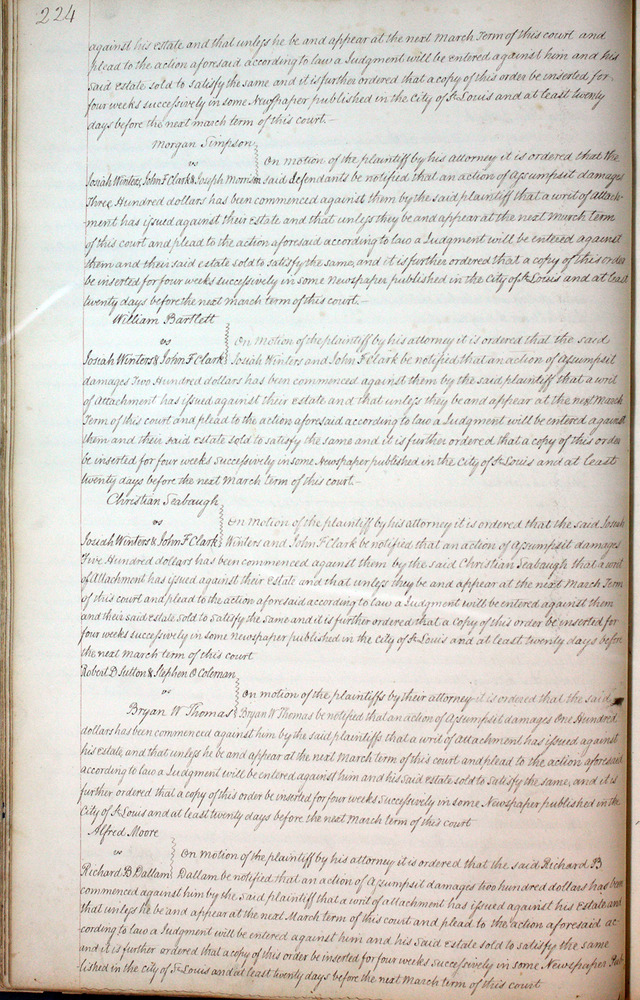 224
against his estate and that unless he be and appear at the next March Term of this court and
plead to the action aforesaid according to law a Judgment will be entered against him and his
said estate sold to satisfy the same and it is further ordered that a copy of this order be inserted for
four weeks successively in some Newspaper published in the City of St Louis and at least twenty
days before the next march term of this court.—
Morgan Simpson
vs On motion of the plaintiff by his attorney it is ordered that the
Josiah Winters, John F Clark & Joseph Morrison said defendants be notified that an action of assumpsit damages
Three Hundred dollars has been commenced against them by the said plaintiff that a writ of attach-
ment has issued against their estate and that unless they be and appear at the next March term
of this court and plead to the action aforesaid according to law a Judgment will be entered against
them and their said estate sold to satisfy the same, and it is further ordered that a copy of this order
be inserted for four weeks successively in some Newspaper published in the City of St Louis and at least
twenty days before the next March term of this court.—
William Bartlett
vs On motion of the plaintiff by his attorney it is ordered that the said
Josiah Winters & John F Clark Josiah Winters and John F Clark be notified that an action of Assumpsit
damages Two Hundred dollars has been commenced against them by the said plaintiff that a writ
of attachment has issued against their estate and that unless they be and appear at the next March
Term of this court and plead to the action aforesaid according to law a Judgment will be entered against
them and their said estate sold to satisfy the same and it is further ordered that a copy of this order
be inserted for four weeks successively in some Newspaper published in the City of St Louis and at least
twenty days before the next March term of this court.—
Christian Seabaugh
vs On motion of the plaintiff by his attorney it is ordered that the said Josiah
Josiah Winters & John F Clark Winters and John F Clark be notified that an action of assumpsit damages
Five Hundred dollars has been commenced against them by the said Christian Seabaugh that a writ
of Attachment has issued against their Estate and that unless they be and appear at the next March Term
of this court and plead to the action aforesaid according to law a Judgment will be entered against them
and their said estate sold to satisfy the same and it is further ordered that a copy of this order be inserted for
four weeks successively in some newspaper published in the City of St Louis and at least twenty days before
the next March term of this court
Robert D Sutton & Stephen O Coleman
vs On motion of the plaintiffs by their attorney it is ordered that the said
Bryan W Thomas Bryan W Thomas be notified that an action of Assumpsit damages One Hundred
dollars has been commenced against him by the said plaintiffs that a writ of attachment has issued against
his estate, and that unless he be and appear at the next March term of this court and plead to the action aforesaid
according to law a Judgment will be entered against him and his said estate sold to satisfy the same, and it is
further ordered that a copy of this order be inserted for four weeks successively in some Newspaper published in the
City of St Louis and at least twenty days before the next March term of this court
Alfred Moore
vs On motion of the plaintiff by his attorney it is ordered that the said Richard B
Richard B. Dallam Dallam be notified that an action of Assumpsit damages two hundred dollars has been
commenced against him by the said plaintiff that a writ of attachment has issued against his estate and
that unless he be and appear at the next March term of this court and plead to the action aforesaid ac-
cording to law a Judgment will be entered against him and his said estate sold to satisfy the same
and it is further ordered that a copy of this order be inserted for four weeks successively in some Newspaper Pub-
lished in the city of St Louis and at least twenty days before the next March term of this court